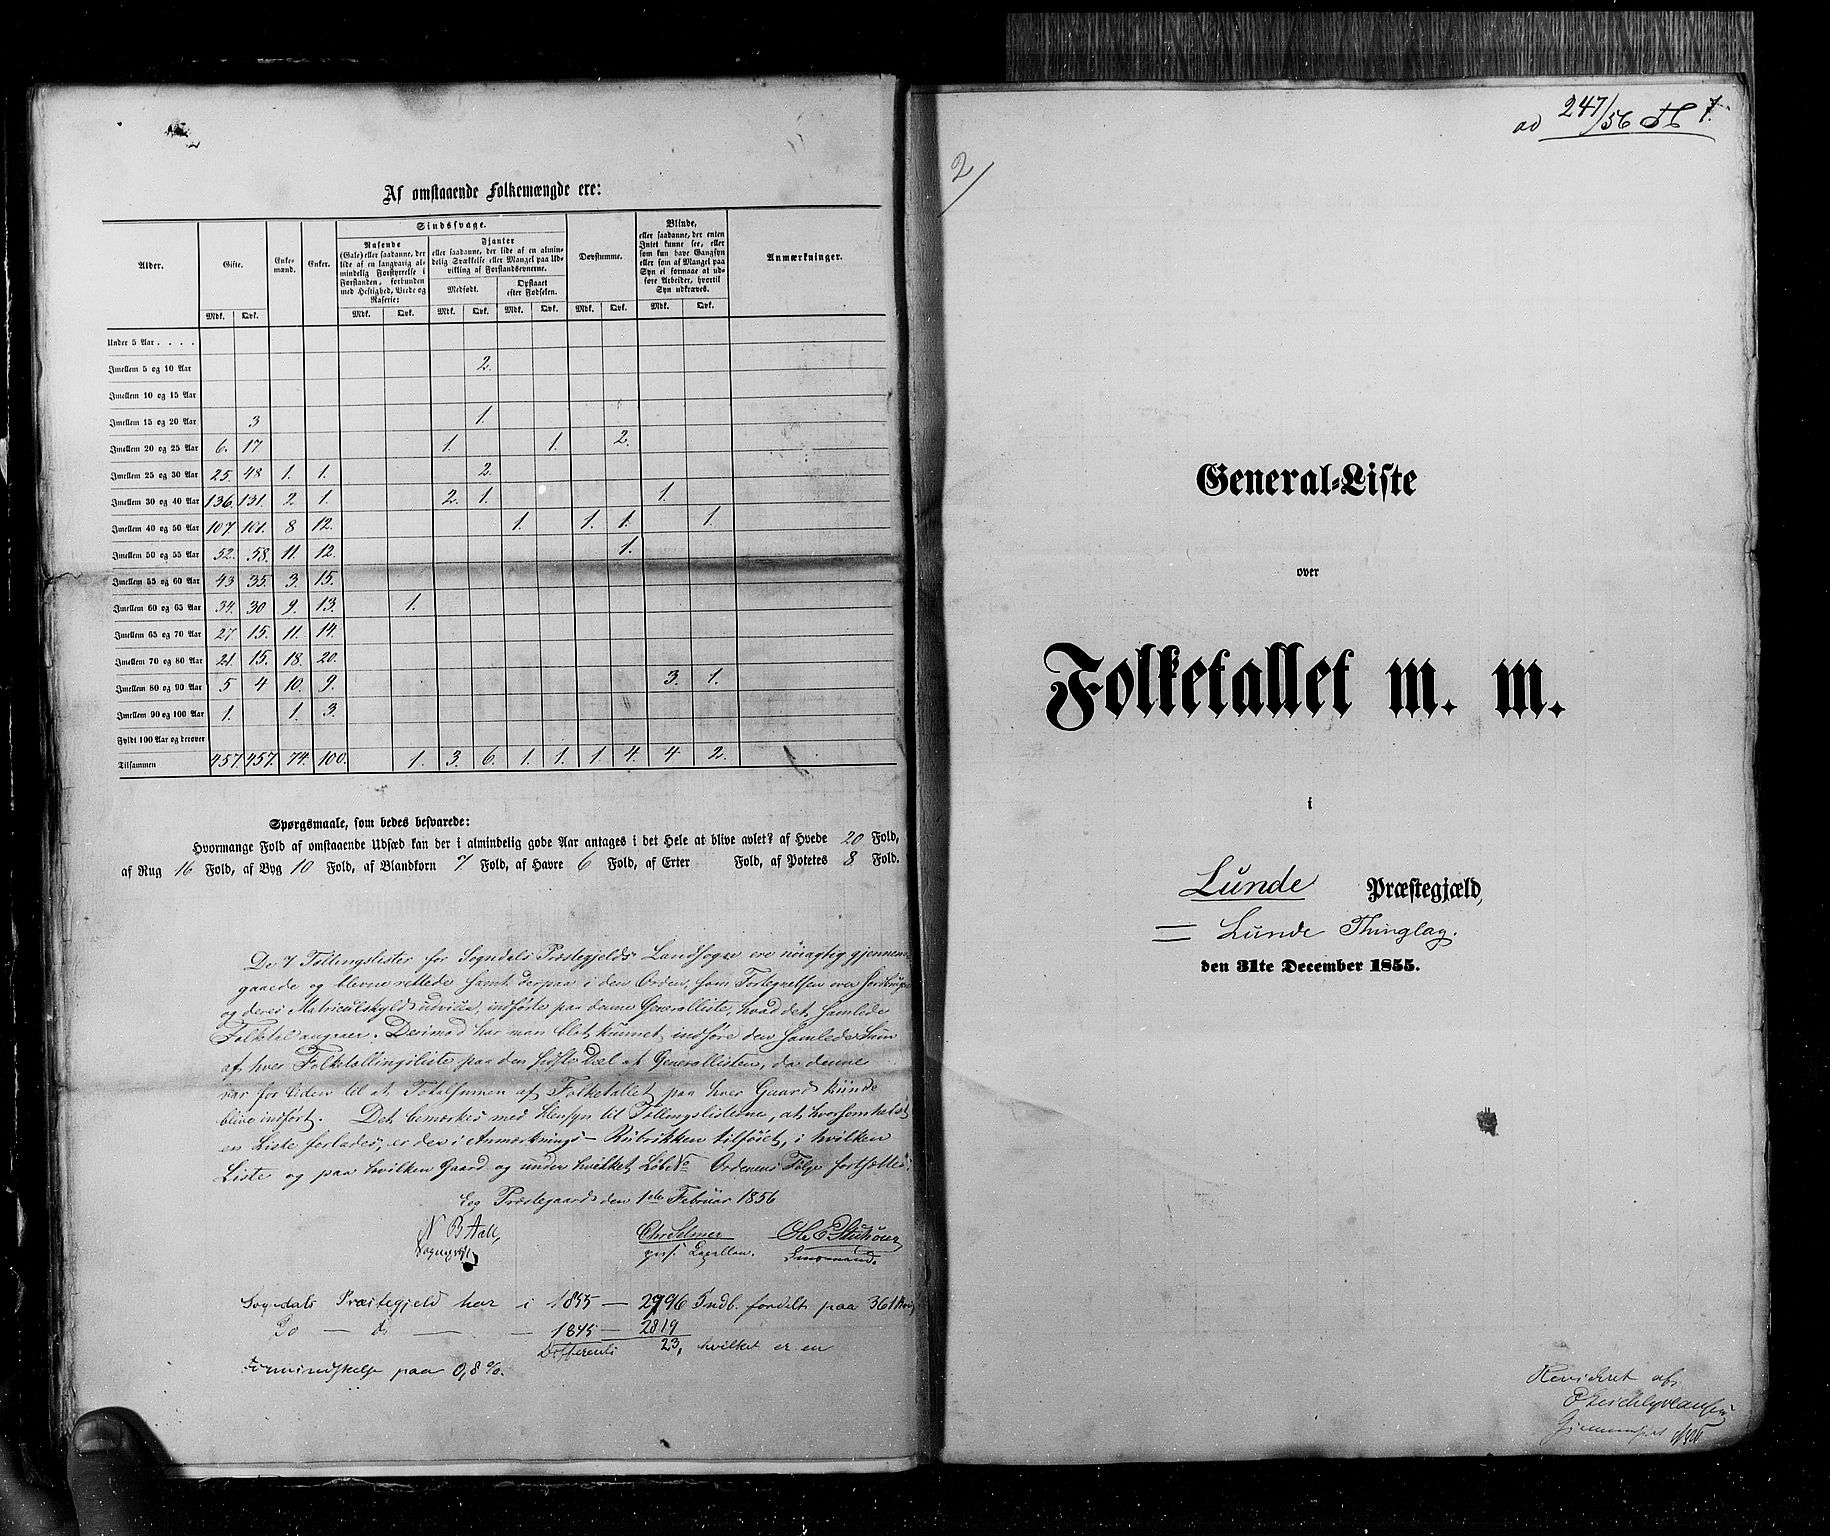 Af omstaaende Folkemængde ere:
Alder. Gifte. Enke-mænd. Enker. Sindssvage. Døvstumme. Blinde, Anmærkninger.
Rasende (Gale) eller saadanne, der lide af en langvarig almindelig Forstyrrelse i Forstanden, forbunden med Heftighed, Vrede og Raserie:
Fjanter eller saadanne, der lide af en almindelig Svækkelse eller Mangel paa Udvikling af Forstandsevnerne.
Medfødt. Opstaaet efter Fødselen.
eller saadanne, der enten Intet kunne see, eller som kun have Gangsyn eller som af Mangel paa Syn ei formaae at udføre Arbeider, hvortil Syn udkræves.
Mdk. Qvk. Mdk. Qvk. Mdk. Qvk. Mdk. Qvk. Mdk. Qvk. Mdk. Qvk.
Under 5 Aar . . . .
Imellem 5 og 10 Aar 2.
Imellem 10 og 15 Aar
Imellem 15 og 20 Aar 3 1.
Imellem 20 og 25 Aar 6. 17 1. 1. 2.
Imellem 25 og 30 Aar 25. 48 1. 1. 2.
Imellem 30 og 40 Aar 136. 131. 2 1. 2. 1. 1.
Imellem 40 og 50 Aar 107. 101. 8 12. 1. 1. 1. 1.
Imellem 50 og 55 Aar 52. 58. 11. 12. 1.
Imellem 55 og 60 Aar 43 35. 3. 15.
Imellem 60 og 65 Aar 34. 30 9. 13. 1.
Imellem 65 og 70 Aar 27 15. 11. 14.
Imellem 70 og 80 Aar 21. 15. 18. 20.
Imellem 80 og 90 Aar 5 4 10. 9. 3. 1.
Imellem 90 og 100 Aar 1. 1. 3.
Fyldt 100 Aar og derover
Tilsammen 457 457. 74. 100. 1. 3. 6. 1. 1. 1. 4. 4 2.
Spørgsmaale, som bedes besvarede:
Hvormange Fold af omstaaende Udsæd kan der i almindelig gode Aar antages i det Hele at blive avlet? af Hvede 20 Fold,
af Rug 16 Fold, af Byg 10 Fold, af Blandkorn 7 Fold, af Havre 6 Fold, af Erter Fold, af Potetes 8 Fold.
De 7 Tællingslister for Sogndals Præstegjelds Landsogn ere nøiagtig gjennem-
gaaede og blevne rettede samt derpaa i den Orden, som Fortegnelsen over
og deres Matriculskyld udviser, indførte paa denne Generalliste, hvad det samlede
Folketal angaaer. Derimod har man blot kunnet indføre den samlede Sum
af hver Folketællingsliste paa den sidste Deel af Generallisten, da denne
var for liden til at Totalsumen af Folketallet paa hver Gaard kunde
blive indført. Det bemærkes med Hensyn til Tællingslisterne, at hvorsomhelst
en Liste forlades, er der i Anmærknings-Rubrikken tilføiet, i hvilken
Liste og paa hvilken Gaard og under hvilket Løbe No Ordenens Følge fortsættes.
Sog. Præstegaard den 1ste Februar 1856
N B Aall, Chr Selmer
Sogneprest Lensmand.
Sogndals Præstegjeld har i 1855 — 2796 Indb. fordelt paa 361
Do — Do — — 1845 — 2819
Differents 23, hvilket er en
Formindskelse paa 0,8 %.
ad 247/56 1.
2/
General-Liste
over
Folketallet m. m.
i
Lunde Præstegjæld,
= Lunde Thinglag.
den 31te December 1855.
Revideret af